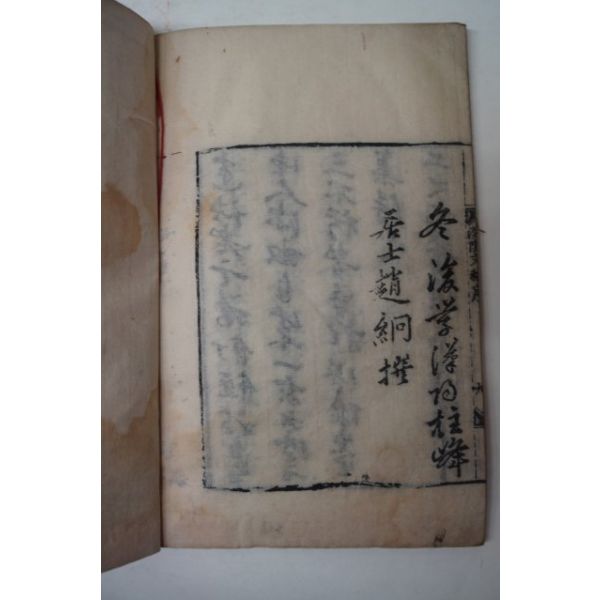 冬後学漢陽柱峰
居士趙絅撰